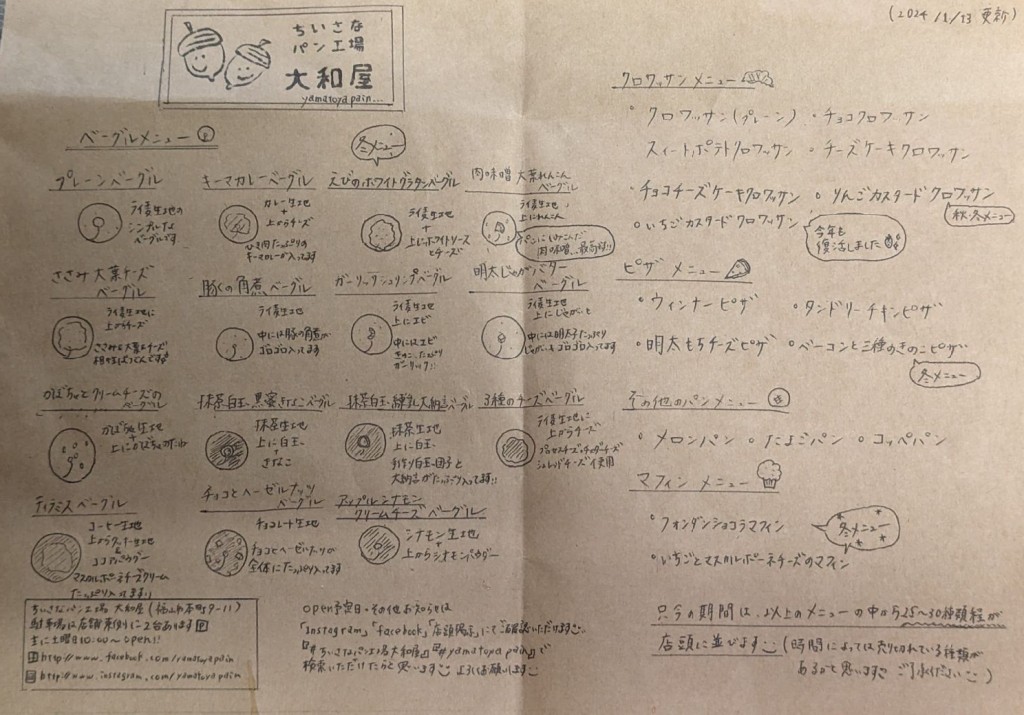 ちいさな
パン工場
大和屋
yamatoyapain...
(2024/1/13 更新)
ベーグルメニュー
プレーンベーグル
ライ麦生地の
シンプルな
ベーグルです
キーマカレーベーグル
カレー生地
+
上からチーズ
ひき肉たっぷりの
キーマカレーが入ってます
冬メニュー
えびのホワイトグラタンベーグル
ライ麦生地
+
上にホワイトソース
とチーズ
肉味噌大葉れんこん
ベーグル
ライ麦生地
上にれんこん
肉味噌...最高!!
ささみ大葉チーズ
ベーグル
ライ麦生地に
上からチーズ
ささみと大葉とチーズ
豚の角煮ベーグル
ライ麦生地
中には豚の角煮が
ゴロゴロ入ってます
ガーリックシュリンプベーグル
ライ麦生地
上にエビ
中にはエビ
きのこたっぷり
ガーリック!!
明太じゃがバター
ベーグル
ライ麦生地
上にじゃがいも
中には明太子たっぷり
じゃがいもゴロゴロ入ってます
かぼちゃとクリームチーズの
ベーグル
かぼちゃ生地
+
抹茶白玉、黒蜜きなこベーグル
抹茶生地
上に白玉
+
きなこ
抹茶白玉、練乳大納言ベーグル
抹茶生地
上に白玉
手作り白玉団子と
大納言がたっぷり入ってます!!
3種のチーズベーグル
ライ麦生地に
上からチーズ
プロセスチーズ、チェダーチーズ
シュレッドチーズ使用
ティラミスベーグル
コーヒー生地
上からクッキー生地
&
ココアパウダー
マスカルポーネチーズクリーム
たっぷり入ってます!!
チョコとヘーゼルナッツ
ベーグル
チョコレート生地
チョコとヘーゼルナッツが
全体にたっぷり入ってます
アップルシナモン
クリームチーズベーグル
シナモン生地
+
上からシナモンパウダー
クロワッサンメニュー
・クロワッサン(プレーン) ・チョコクロワッサン
スィートポテトクロワッサン ・チーズケーキクロワッサン
・チョコチーズケーキクロワッサン ・りんごカスタードクロワッサン
秋・冬メニュー
・いちごカスタードクロワッサン
今年も
復活しました
ピザメニュー
・ウィンナーピザ ・タンドリーチキンピザ
・明太もちチーズピザ ・ベーコンと三種のきのこピザ
冬メニュー
その他のパンメニュー
・メロンパン ・たまごパン ・コッペパン
マフィンメニュー
・フォンダンショコラマフィン
冬メニュー
・いちごとマスカルポーネチーズのマフィン
只今の期間は、以上のメニューの中から25~30種類程が
店頭に並びます (時間によっては売り切れている種類が
あるかと思います ご了承ください)
ちいさなパン工場 大和屋 (福山市本町9-11)
駐車場は店舗東側に2台あります
主に土曜日10:00~open!!
http://www.facebook.com/yamatoyapain
http://www.instagram.com/yamatoyapain
open予定日・その他お知らせは
「instagram」「facebook」「店頭掲示」にてご確認いただけます
『#ちいさなパン工場大和屋』『#yamatoyapain』で
検索いただけたらと思います よろしくお願いします